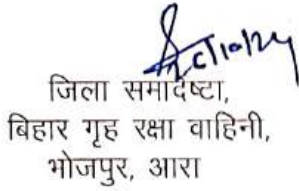 जिला समादेष्टा,
बिहार गृह रक्षा वाहिनी,
भोजपुर, आरा